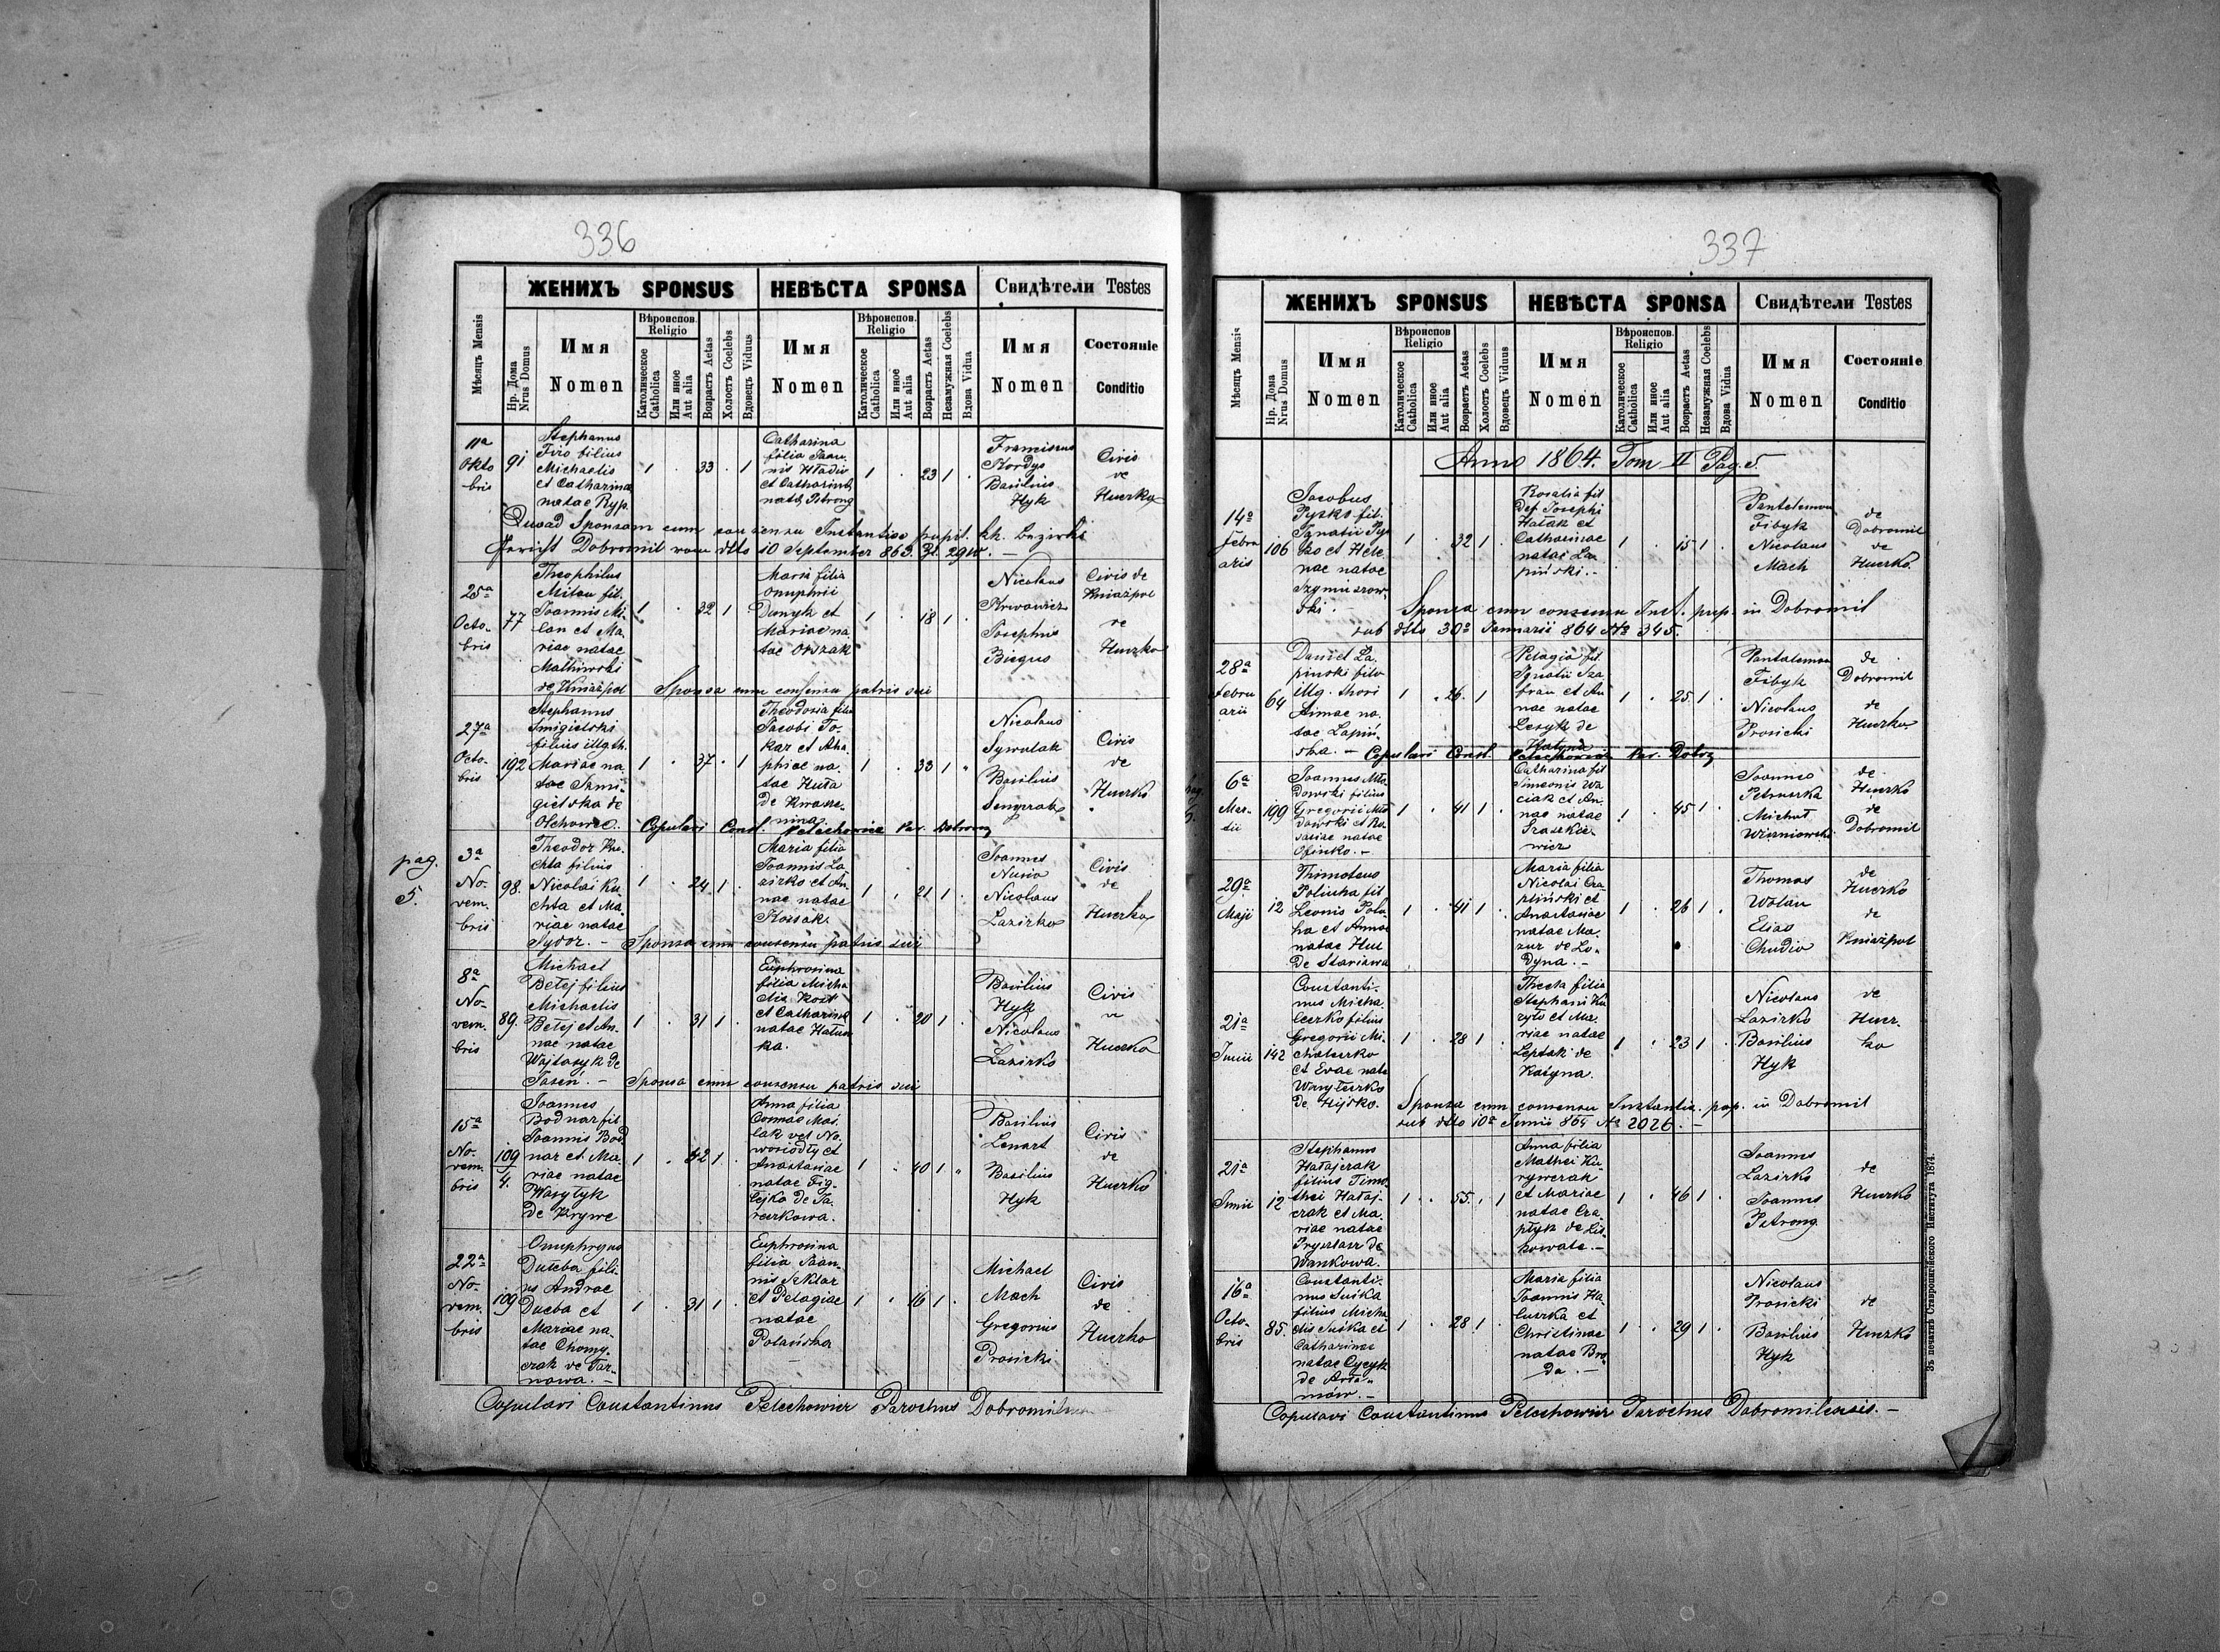 336
ЖЕНИХЪ SPONSUS НЕВѢСТА SPONSA Свидѣтели Testes
Мѣсяцъ Mensis
Нр. Дома Nrus Domus
Имя Nomen
Вѣроиспов. Religio
Католическое Catholica
Или иное Aut alia
Возрастъ Aetas
Холостъ Coelebs
Вдовецъ Viduus
Имя Nomen
Вѣроиспов. Religio
Католическое Catholica
Или иное Aut alia
Возрастъ Aetas
Незамужная Coelebs
Вдова Vidua
Имя Nomen
Состояніе Conditio
11a
Okto
bris
91
Stephanus
Firo filius
Michaelis
et Catharinae
natae Ryp.
1 . 33 . 1
Catharina
filia Joan-
nis Hładio
et Catharinae
natae Petrong
1 . 23 1 .
Franciscus
Kordys
Basilius
Hyk
Civis
de
Huczko
Quoad Sponsam cum consensu Instantiae pupil. kk. Bezirks
Gericht Dobromil vom dtto 10 September 863. Zl. 2910. —
25a
Octo-
bris
77
Theophilus
Milan fil.
Joannis Mi-
lan et Ma-
riae natae
Mathiwski
de Kniażpol
1 . 32 1
Maria filia
Onuphrii
Dunyk et
Mariae na-
tae Orszak
1 . 18 1 .
Nicolaus
Krwawicz
Josephus
Biegus
Civis de
Kniażpol
de
Huczko
Sponsa cum consensu patris sui
27a
Octo-
bris
192
Stephanus
Smigielski
filius illgth.
Mariae na-
tae Smi-
gielska de
Olchowce.
1 . 37 . 1
Theodosia filia
Jacobi To-
kar et Aha-
phiae na-
tae Huta
de Kwasze-
nina.
1 . 33 1 "
Nicolaus
Sywulak
Basilius
Civis
de
Huczko
Copulavi Const. Pelechowicz Par. Dobrom
pag.
5.
3a
No-
vem.
bris
98.
Theodor Ku-
chta filius
Nicolai Ku-
chta et Ma-
riae natae
Sydor. —
1 . 24 1 .
Maria filia
Joannis La-
zirko et An-
nae natae
Kossak.
1 . 21 1 .
Joannes
Nusio
Nicolaus
Lazirko
Civis
de
Huczko
Sponsa cum consensu patris sui
8a
No-
vem.
bris
89.
Michael
Betej filius
Michaelis
Betej et An-
nae natae
Wajtasyk de
Jasień. —
1 . 31 1 .
Euphrosina
filia Micha
elis Kost
et Catharinae
natae Hałusz
ka.
1 . 20 1 .
Basilius
Hyk
Nicolaus
Lazirko
Civis
de
Huczko
Sponsa cum consensu patris sui
15a
No-
vem.
bris
109
4.
Joannes
Bodnar fil
Joannis Bod
nar et Ma-
riae natae
Wasyłyk
de Krywe
1 . 42 1 .
Anna filia
Cosmae Mas-
lak vel No-
wosiodły et
Anastasiae
natae Fig-
lejko de Ja-
reczkowa.
1 . 40 1 "
Basilius
Lenart
Basilius
Hyk
Civis
de
Huczko
22a
No-
vem.
bris
109
Onuphryus
Duleba fili-
us Andrae
Duleba et
Mariae na-
tae Chomy-
czak de Tar-
nowa. —
1 . 31 1 .
Euphrosina
filia Joan-
nis Szklar
et Pelagiae
natae
Polańska
—
1 . 16 1 .
Michael
Mach
Gregorius
Prosicki
Civis
de
Huczko
Copulavi Constantinus Pelechowicz Parochus Dobromilensis
337
ЖЕНИХЪ SPONSUS НЕВѢСТА SPONSA Свидѣтели Testes
Мѣсяцъ Mensis
Нр. Дома Nrus Domus
Имя Nomen
Вѣроиспов. Religio
Католическое Catholica
Или иное Aut alia
Возрастъ Aetas
Холостъ Coelebs
Вдовецъ Viduus
Имя Nomen
Вѣроиспов. Religio
Католическое Catholica
Или иное Aut alia
Возрастъ Aetas
Незамужная Coelebs
Вдова Vidua
Имя Nomen
Состояніе Conditio
Anno 1864. Tom II Pag. 5.
14a
Febru
aris
106
Jacobus
Pyzko fil.
Ignatii Pyz
ko et Hele-
nae natae
Szymiszow-
ski. —
1 . 32 1 .
Rosalia fil
def Josephi
Hałak et
Catharinae
natae La-
pinski. —
1 . 15 1 .
Pantelemon
Fibyk
Nicolaus
Mach
de
Dobromil
de
Huczko.
Sponsa cum consensu Inst. pup. in Dobromil
sub dtto 30a Januarii 864 No 345.
28a
Febru
arii
64
Daniel La-
pinski filius
illg. thori
Annae na-
tae Lapiń-
ska. —
1 . 26. 1
Pelagia fil.
Ignatii Sza
bran et An
nae natae
Lesyk de
Katyna
1 . 25 1 .
Pantalemon
Fibyk
Nicolaus
Prosicki
de
Dobromil
de
Huczko
Copulavi Const. Pelechowicz Par. Dobrom
pag.
6.
6a
Mar-
tii
199
Joannes Mło
dowski filius
Gregorii Mło
dowski et Ro-
saliae natae
1 . 41 1 .
Catharina fil
Simeonis Wa
ciak et An-
nae natae
Szaszkie-
wicz
1 . 45 1 .
Joannes
Petruszka
Michał
Wiszniowski
de
Huczko
de
Dobromil
29a
Maji
12
Thimoteus
Poliuha fil
Leonis Polu
ha et Annae
natae Hul
de Starzawa
1 . 41 1 .
Maria filia
Nicolai Cza-
pliński et
Anastasiae
natae Ma-
zur de Lo-
dyna. —
1 . 26 1 .
Thomas
Wołan
Elias
Chudio
de
Huczko
de
Kniażpol
21a
Junii
142
Constanti-
nus Micha
leczko filius
Gregorii Mi-
chaleczko
et Evae natae
Wasyłeczko
de Hujsko.
1 . 28 1 .
Thecla filia
Stephani Ku
ryło et Ma-
riae natae
Leptak de
Katyna.
1 . 23 1 .
Nicolaus
Lazirko
Basilius
Hyk
de
Hucz-
ko
Sponsa cum consensu Instantia. pup. in Dobromil
sub dtto 10a Junii 864 No 2026. —
21a
Junii
12
Stephanus
Hałajczak
filius Timo
thei Hałaj-
czak et Ma-
riae natae
Prystasz de
Wankowa.
1 . 55. . 1
Anna filia
Mathei Ku-
rywczak
et Mariae
natae Cza-
płyk de Lis-
kowate. —
1 . 46 1 .
Joannes
Lazirko
Joannes
Petrong
de
Huczko
16a
Octo-
bris
85.
Constanti-
nus Suśka
filius Micha
elis Suśka et
Catharinae
natae Cycyk
de Arła-
mów. —
1 . 28 1
Maria filia
Joannis Ha-
łuszka et
Christinae
natae Bro-
da. —
1 . 29 1 .
Nicolaus
Prosicki
Basilius
Hyk
de
Huczko
Copulavi Constantinus Pelechowicz Parochus Dobromilensis. —
Зъ печатнѣ Ставропигійского Института 1874.